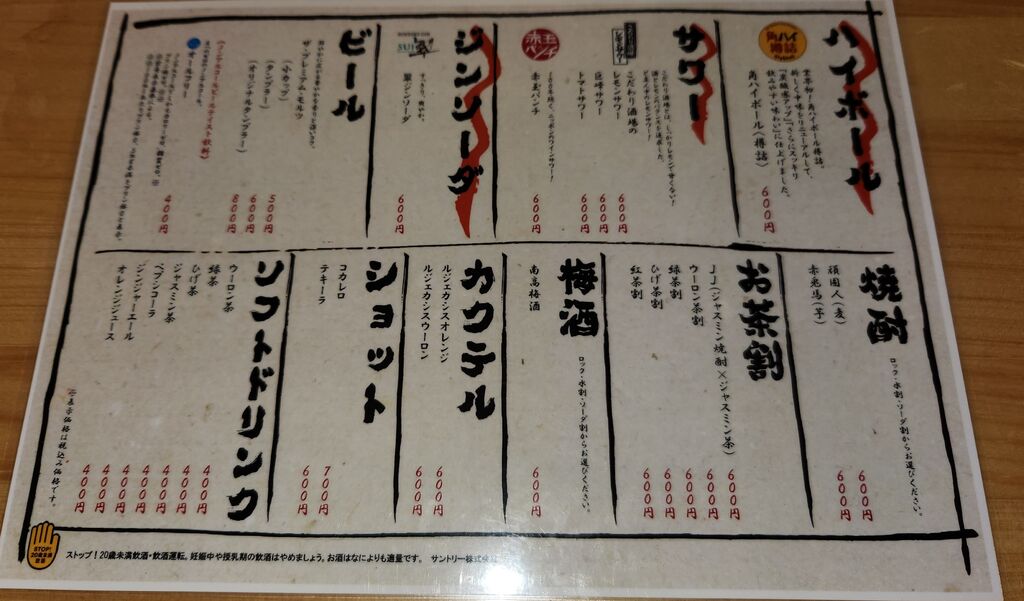 ハイボール
角ハイ
樽詰
業界初!角ハイボール樽詰。
新しく中味をリニューアルして、
「炭酸感アップ」「さらにスッキリ
飲みやすい味わい」に仕上げました。
角ハイボール(樽詰) 600円
サワー
こだわり酒場の
レモンサワー
こだわり酒場のレモンサワー 600円
巨峰サワー 600円
トマトサワー 600円
赤玉
パンチ
100年続く、ニッポンのワインサワー!
赤玉パンチ 600円
ジンソーダ
SUI 翠
すっきり、爽やか。
翠ジンソーダ 600円
ビール
ザ・プレミアム・モルツ
(小カップ) 500円
(タンブラー) 600円
(オリジナルタンブラー) 800円
《ノンアルコールビールテイスト飲料》
オールフリー 400円
焼酎
ロック・水割・ソーダ割からお選びください。
頑固人(麦) 600円
赤兎馬(芋) 600円
お茶割
JJ(ジャスミン焼酎×ジャスミン茶) 600円
ウーロン茶割 600円
緑茶割 600円
ひげ茶割 600円
紅茶割 600円
梅酒
ロック・水割・ソーダ割からお選びください。
南高梅酒 600円
カクテル
ルジェカシスオレンジ 600円
ルジェカシスウーロン 600円
ショット
コカレロ 700円
テキーラ 600円
ソフトドリンク
ウーロン茶 400円
緑茶 400円
ひげ茶 400円
ジャスミン茶 400円
ペプシコーラ 400円
ジンジャーエール 400円
オレンジジュース 400円
※表示価格は税込み価格です。
STOP!
20歳未満
飲酒
ストップ!20歳未満飲酒・飲酒運転。妊娠中や授乳期の飲酒はやめましょう。お酒はなによりも適量です。 サントリー株式会社